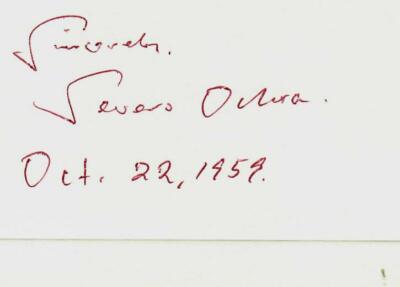 Sincerely.
Severo Ochoa.
Oct. 22, 1959.